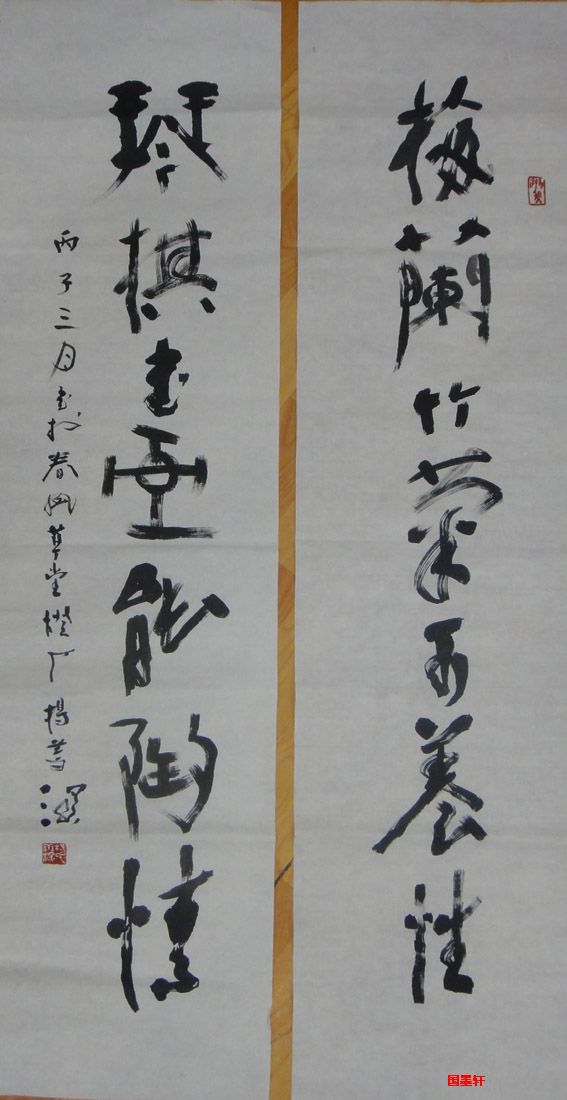 梅蘭竹菊可養性
琴棋書畫能陶情
丙子三月書於春風草堂
楊
国墨轩